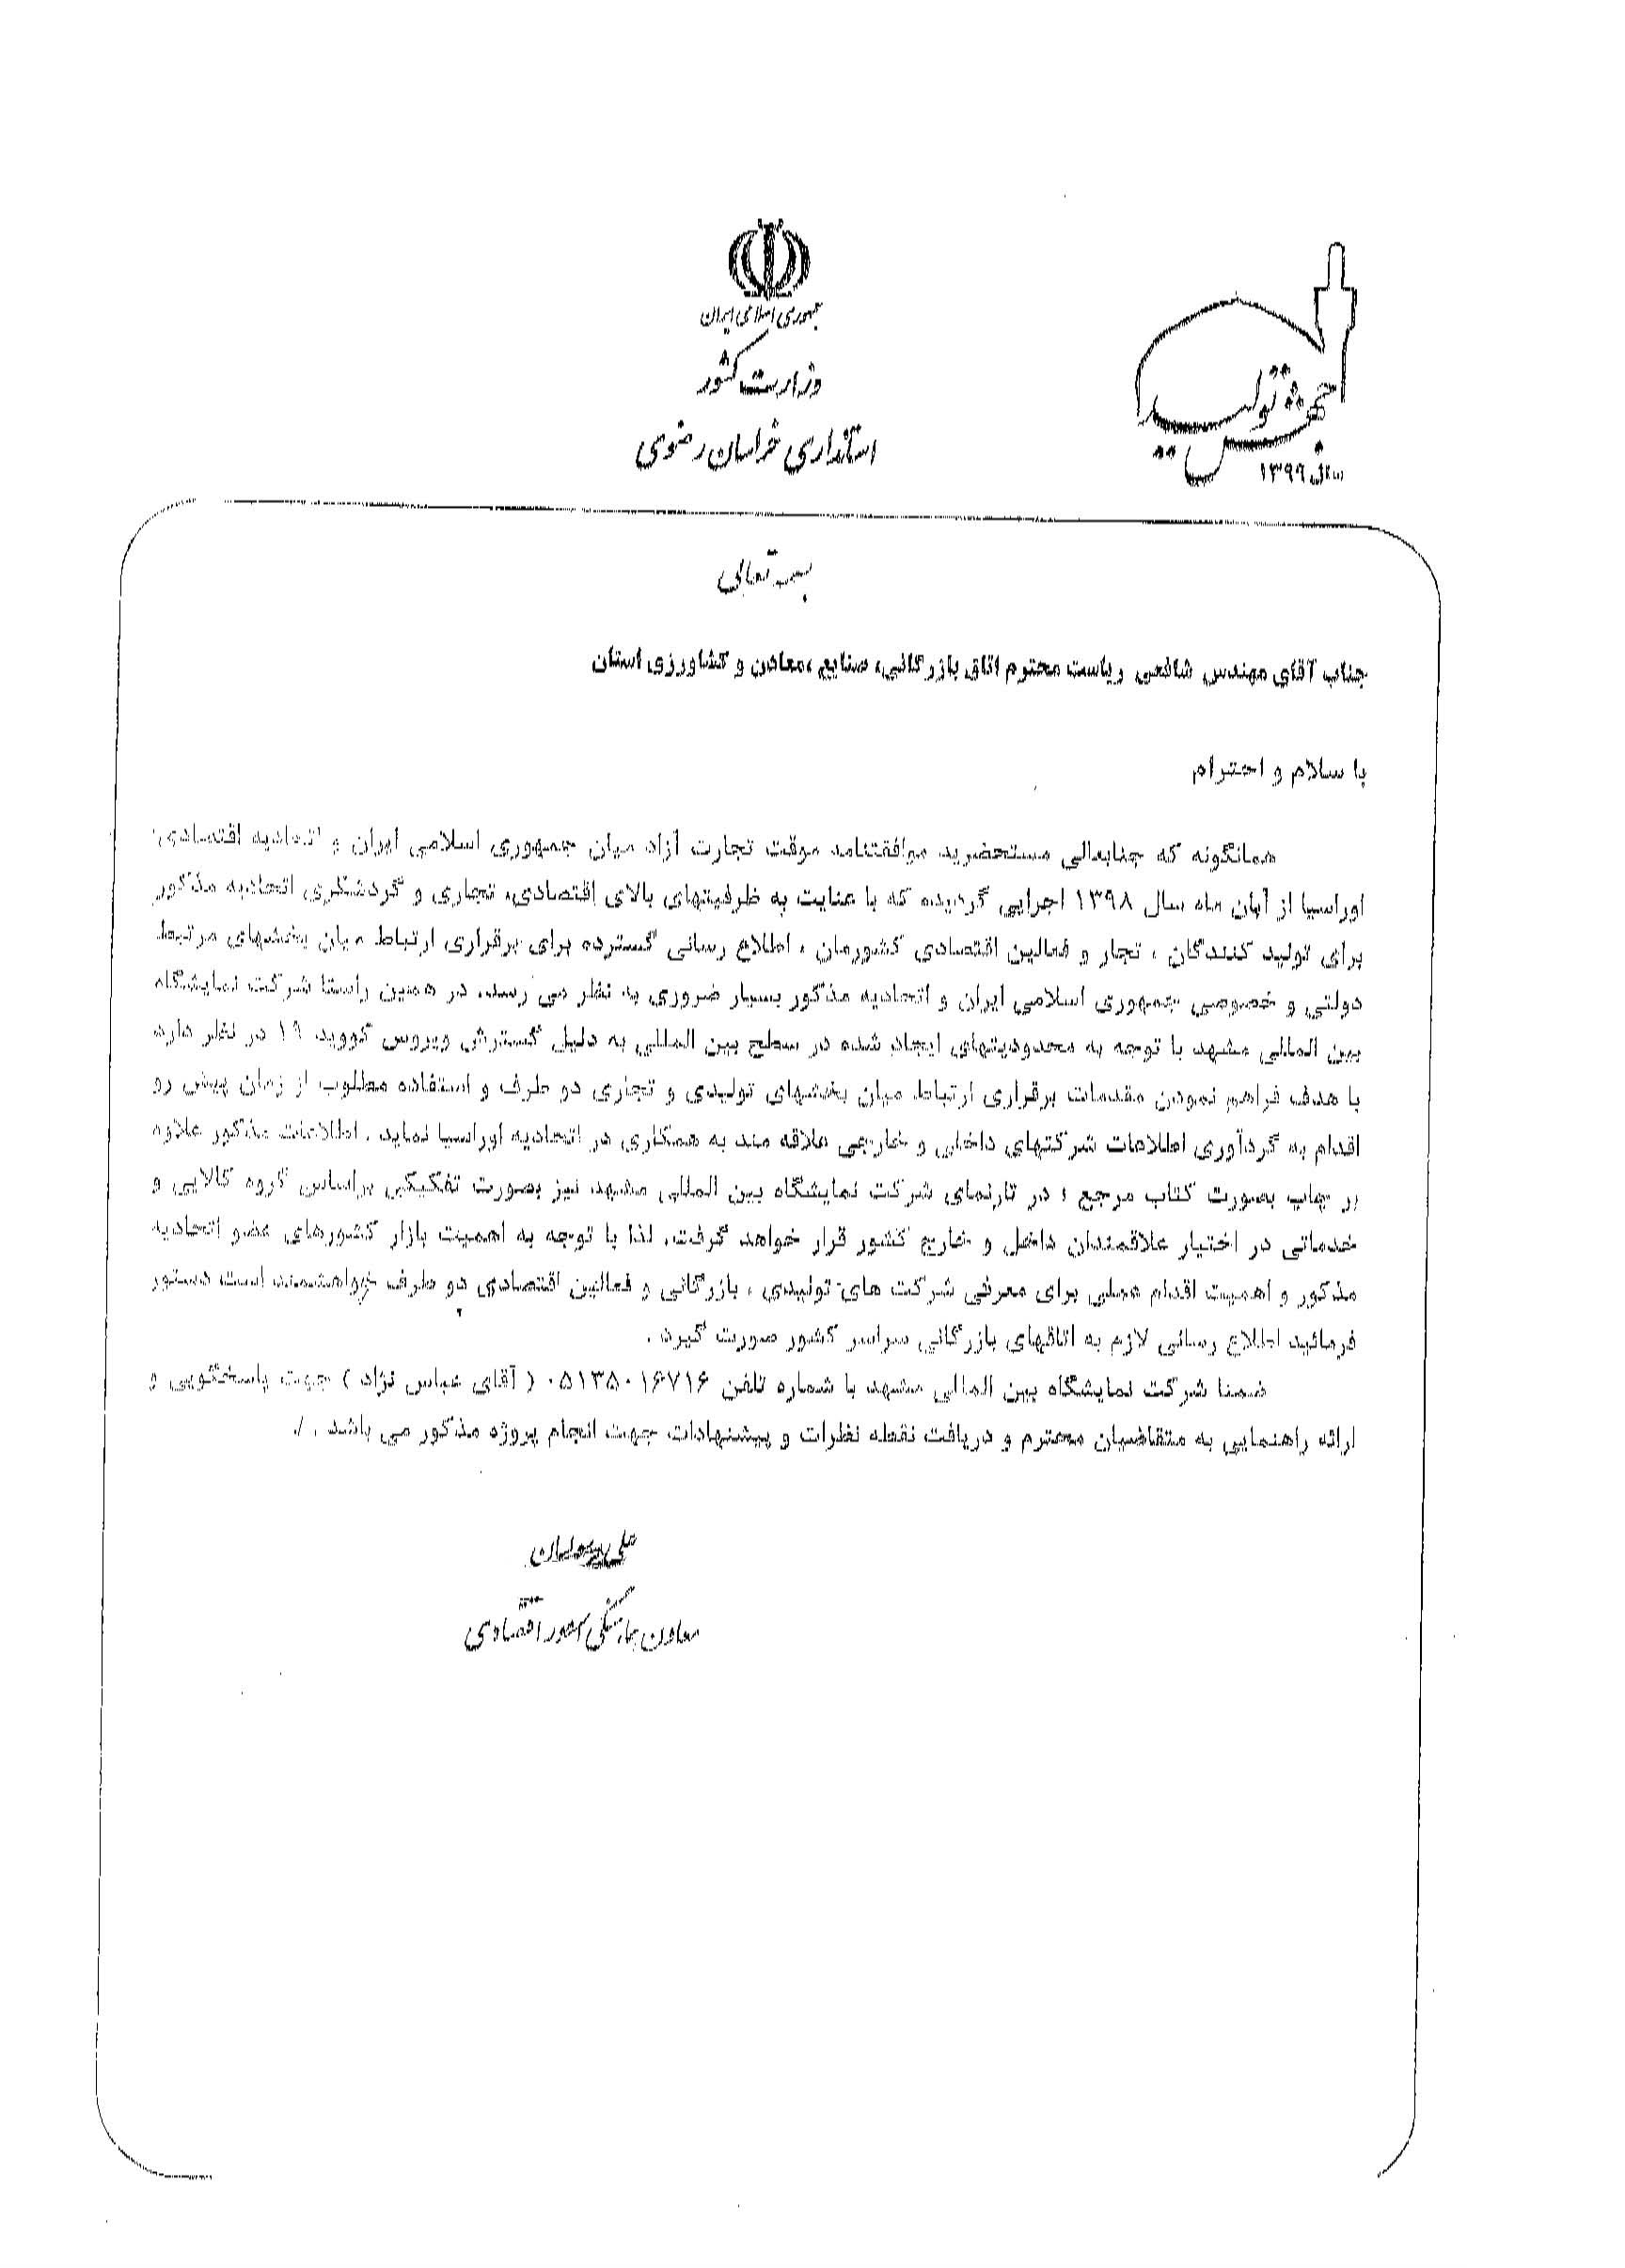 جمهوری اسلامی ایران
وزارت کشور
استانداری خراسان رضوی
جهش تولید
سال ۱۳۹۹
بسمه تعالی
جناب آقای مهندس شافعی ریاست محترم اتاق بازرگانی، صنایع ،معادن و کشاورزی استان
با سلام و احترام
همانگونه که جنابعالی مستحضرید موافقتنامه موقت تجارت آزاد میان جمهوری اسلامی ایران و اتحادیه اقتصادی
اوراسیا از آبان ماه سال ۱۳۹۸ اجرایی گردیده که با عنایت به ظرفیتهای بالای اقتصادی، تجاری و گردشگری اتحادیه مذکور
برای تولید کنندگان ، تجار و فعالین اقتصادی کشورمان ، اطلاع رسانی گسترده برای برقراری ارتباط میان بخشهای مرتبط
دولتی و خصوصی جمهوری اسلامی ایران و اتحادیه مذکور بسیار ضروری به نظر می رسد. در همین راستا شرکت نمایشگاه
بین المالی مشهد با توجه به محدودیتهای ایجاد شده در سطح بین المللی به دلیل گسترش ویروس کووید ۱۹ در نظر دارد
با هدف فراهم نمودن مقدمات برقراری ارتباط میان بخشهای تولیدی و تجاری دو طرف و استفاده مطلوب از زمان پیش رو
اقدام به گردآوری اطلاعات شرکتهای داخلی و خارجی علاقه مند به همکاری در اتحادیه اوراسیا نماید . اطلاعات مذکور علاوه
بر چاپ بصورت کتاب مرجع ؛ در تارنمای شرکت نمایشگاه بین المللی مشهد نیز بصورت تفکیکی براساس گروه کالایی و
خدماتی در اختیار علاقمندان داخل و خارج کشور قرار خواهد گرفت. لذا با توجه به اهمیت بازار کشورهای عضو اتحادیه
مذکور و اهمیت اقدام عملی برای معرفی شرکت های تولیدی ، بازرگانی و فعالین اقتصادی دو طرف خواهشمند است دستور
فرمائید اطلاع رسانی لازم به اتاقهای بازرگانی سراسر کشور صورت گیرد .
ضمنا شرکت نمایشگاه بین المالی مشهد با شماره تلفن ۰۵۱۳۵۰۱۶۷۱۶ ( آقای عباس نژاد ) جهت پاسخگویی و
ارائه راهنمایی به متقاضیان محترم و دریافت نقطه نظرات و پیشنهادات جهت انجام پروژه مذکور می باشد . /.
علی رسولیان
معاون هماهنگی امور اقتصادی